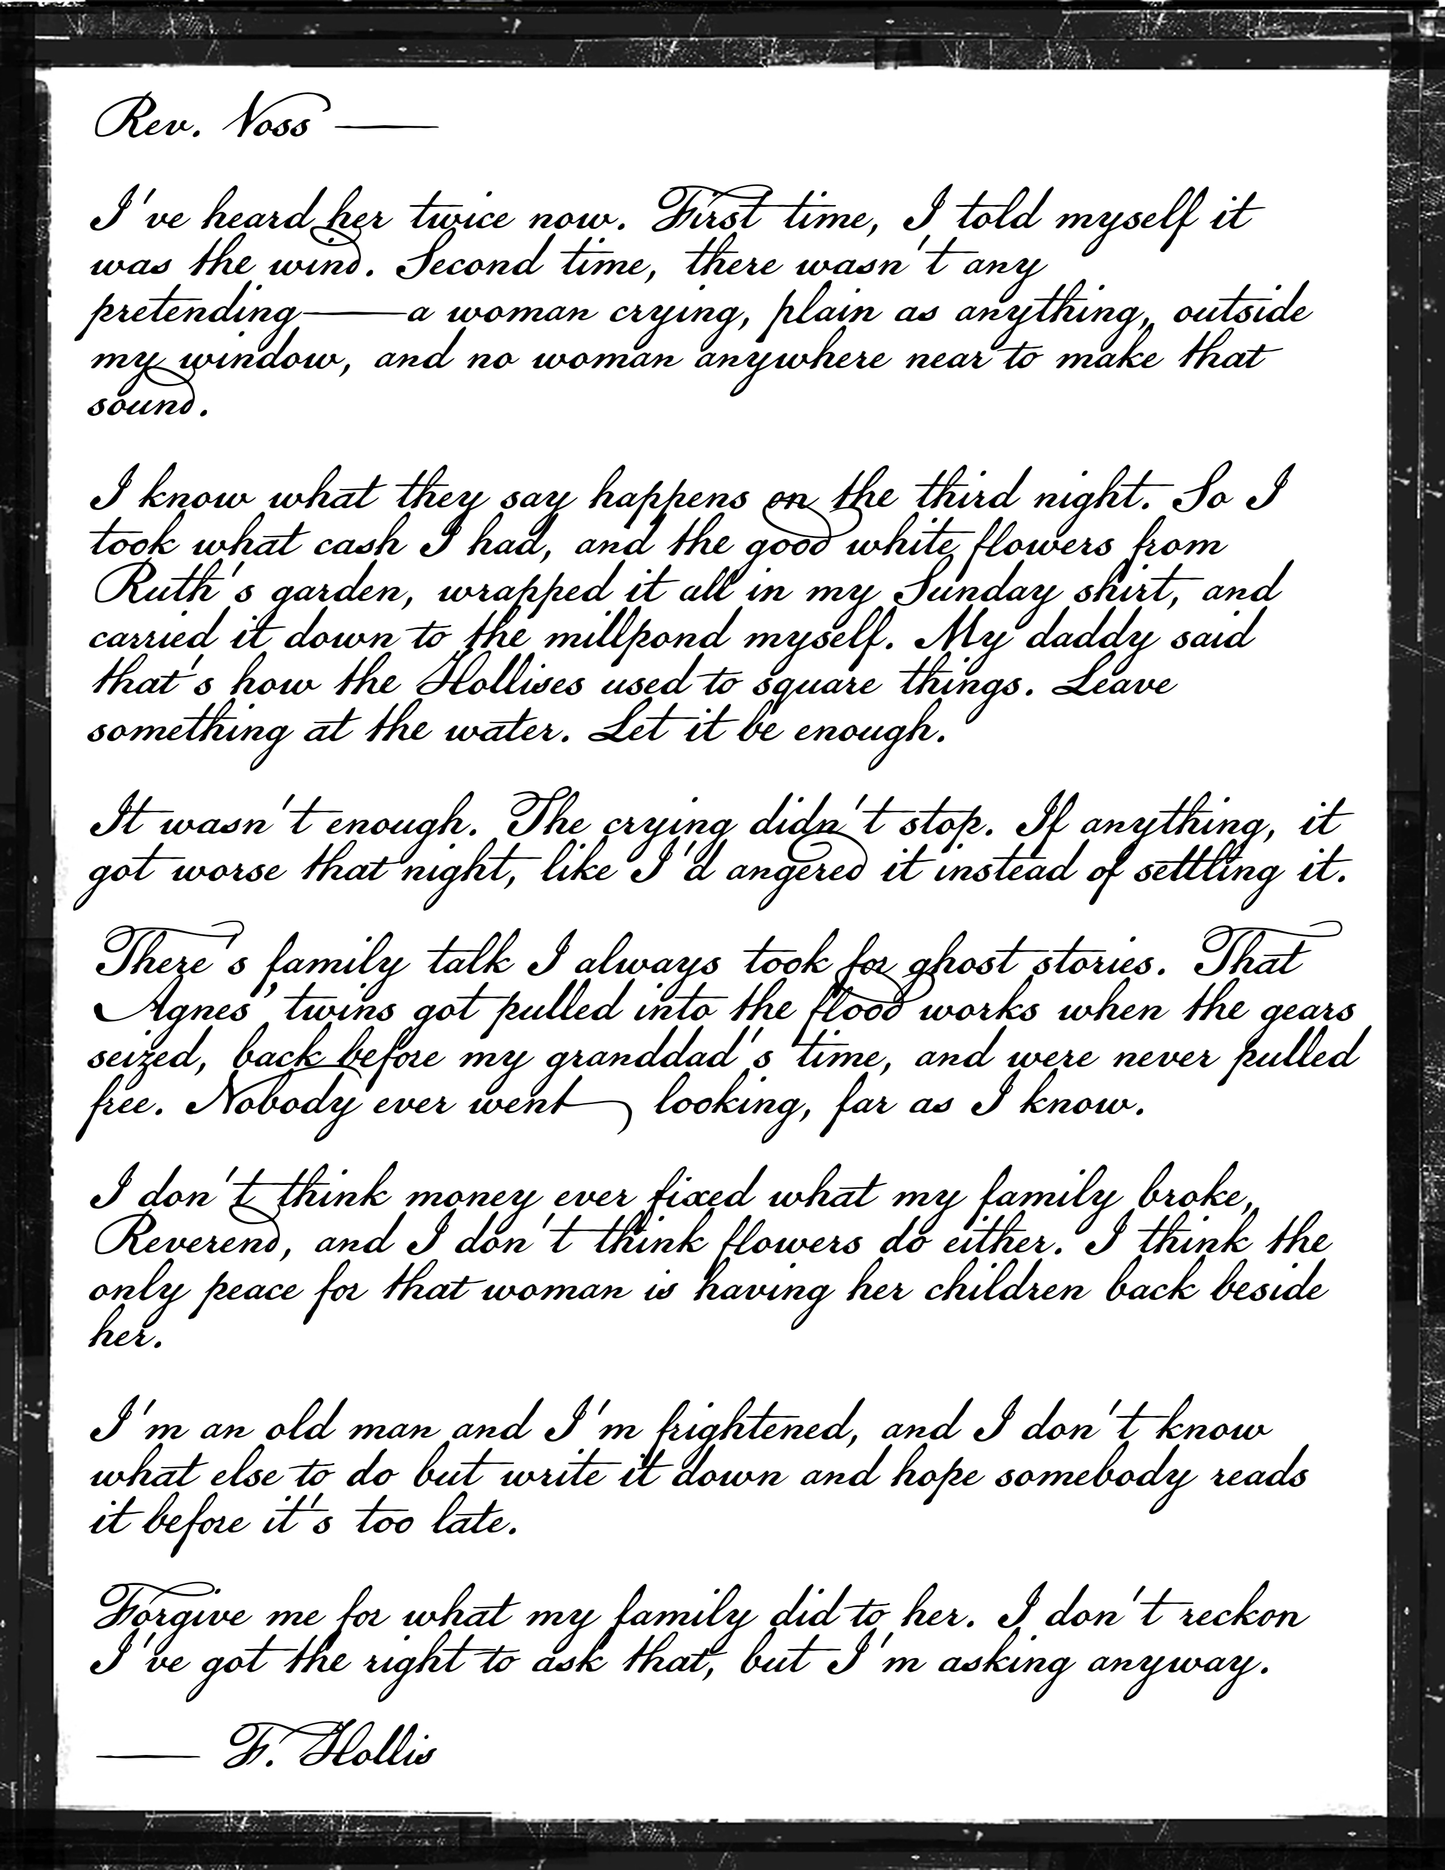 Rev. Voss —
I've heard her twice now. First time, I told myself it
was the wind. Second time, there wasn't any
pretending—a woman crying, plain as anything, outside
my window, and no woman anywhere near to make that
sound.
I know what they say happens on the third night. So I
took what cash I had, and the good white flowers from
Ruth's garden, wrapped it all in my Sunday shirt, and
carried it down to the millpond myself. My daddy said
that's how the Hollises used to square things. Leave
something at the water. Let it be enough.
It wasn't enough. The crying didn't stop. If anything, it
got worse that night, like I'd angered it instead of settling it.
There's family talk I always took for ghost stories. That
Agnes' twins got pulled into the flood works when the gears
seized, back before my granddad's time, and were never pulled
free. Nobody ever went looking, far as I know.
I don't think money ever fixed what my family broke,
Reverend, and I don't think flowers do either. I think the
only peace for that woman is having her children back beside
her.
I'm an old man and I'm frightened, and I don't know
what else to do but write it down and hope somebody reads
it before it's too late.
Forgive me for what my family did to her. I don't reckon
I've got the right to ask that, but I'm asking anyway.
— F. Hollis